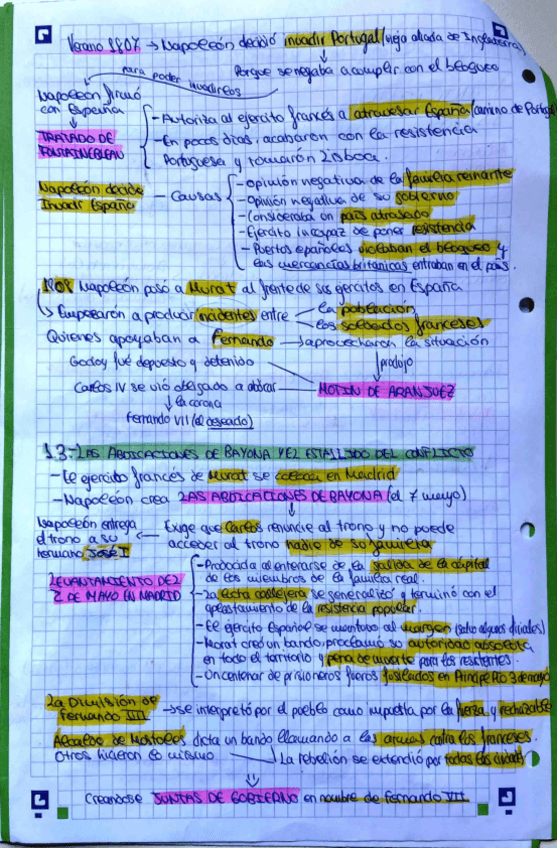 Verano 1807 → Napoleón decidió invadir Portugal (vieja aliada de Inglaterra)
Porque se negaba a cumplir con el bloqueo
para poder invadirlos
Napoleón firmó con España
TRATADO DE FONTAINEBLEAU
- Autoriza al ejercito francés a atravesar España (camino de Portugal
- En pocos dias, acabaron con la resistencia
Portuguesa y tomarón Lisboa.
Napoleón decide
Invadir España
Causas
- Opinión negativa de la familia reinante
- Opinión negativa de su gobierno
- Consideraba un país atrasado
- Ejercito incapaz de poner resistencia
- Puertos españoles violaban el bloqueo y
las mercancías británicas entraban en el país.
1808 Napoleón puso a Murat al frente de sus ejercitos en España
Empezarón a producir incidentes entre
la población
los soldados franceses
Quienes apoyaban a Fernando → aprovecharon la situación
produjo
Godoy fué depuesto y detenido
Carlos IV se vió obligado a abdicar
MOTÍN DE ARANJUEZ
la corona
Fernando VII (el deseado)
1.3- LAS ABDICACIONES DE BAYONA Y EL ESTALLIDO DEL CONFLICTO
- El ejercito francés de Murat se coloca en Madrid
- Napoleón crea LAS ABDICACIONES DE BAYONA (el 7 mayo)
Napoleón entrega
el trono a su
hermano José I
Exige que Carlos renuncie al trono y no puede
acceder al trono nadie de su familia
LEVANTAMIENTO DEL
2 DE MAYO EN MADRID
- Probocada al enterarse de la salida de la capital
de los miembros de la familia real.
- La lucha callejera se generalizó y terminó con el
aplastamiento de la resistencia popular.
- El ejército Español se mantuvo al margen (salvo algunos oficiales)
- Murat creó un bando, proclamó su autoridad absoluta
en todo el territorio y pena de muerte para los resistentes.
- Un centenar de prisioneros fueros fusilados en Principe Pío 3 de mayo
La Dimisión de
Fernando VII
→ se interpretó por el pueblo como impuesta por la fuerza y rechazable
Alcalde de Mostoles dicta un bando llamando a las armas contra los franceses.
Otros hicieron lo mismo
La rebelión se extendió por todas las ciudades
Creandose JUNTAS DE GOBIERNO en nombre de Fernando VII